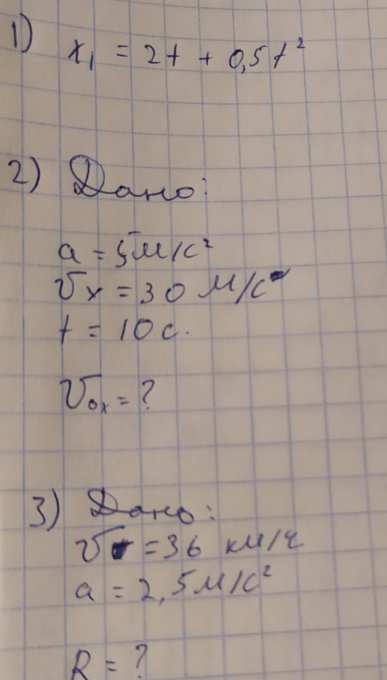 1) x₁ = 2t + 0,5t²
2) Дано:
a = 5 м/с²
υx = 30 м/с
t = 10 с.
υ₀x = ?
3) Дано:
υ = 36 км/ч
a = 2,5 м/с²
R = ?